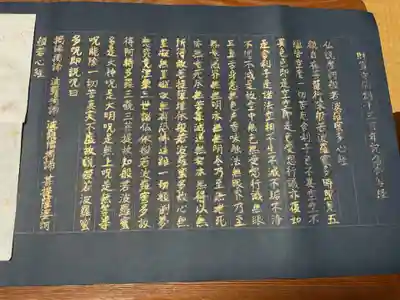 十三周年記念
仏説摩訶般若波羅蜜多心経
観自在菩薩行深般若波羅蜜多時照見五
蘊皆空度一切苦厄舎利子色不異空空不
異色色即是空空即是色受想行識亦復如
是舎利子是諸法空相不生不滅不垢不浄
不増不減是故空中無色無受想行識無眼
耳鼻舌身意無色声香味触法無眼界乃至
無意識界無無明亦無無明尽乃至無老死
亦無老死尽無苦集滅道無智亦無得以無
所得故菩提薩埵依般若波羅蜜多故心無
罣礙無罣礙故無有恐怖遠離一切顛倒夢
想究竟涅槃三世諸仏依般若波羅蜜多故
得阿耨多羅三藐三菩提故知般若波羅蜜
多是大神呪是大明呪是無上呪是無等等
呪能除一切苦真実不虚故説般若波羅蜜
多呪即説呪曰
羯諦羯諦 波羅羯諦 波羅僧羯諦 菩提薩婆訶
般若心経